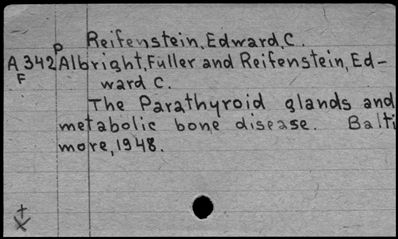 Reifenstein, Edward, C.
P
A 342 Albright, Fuller and Reifenstein, Ed-
F
ward C.
The Parathyroid glands and
metabolic bone disease. Balti
more, 1948.